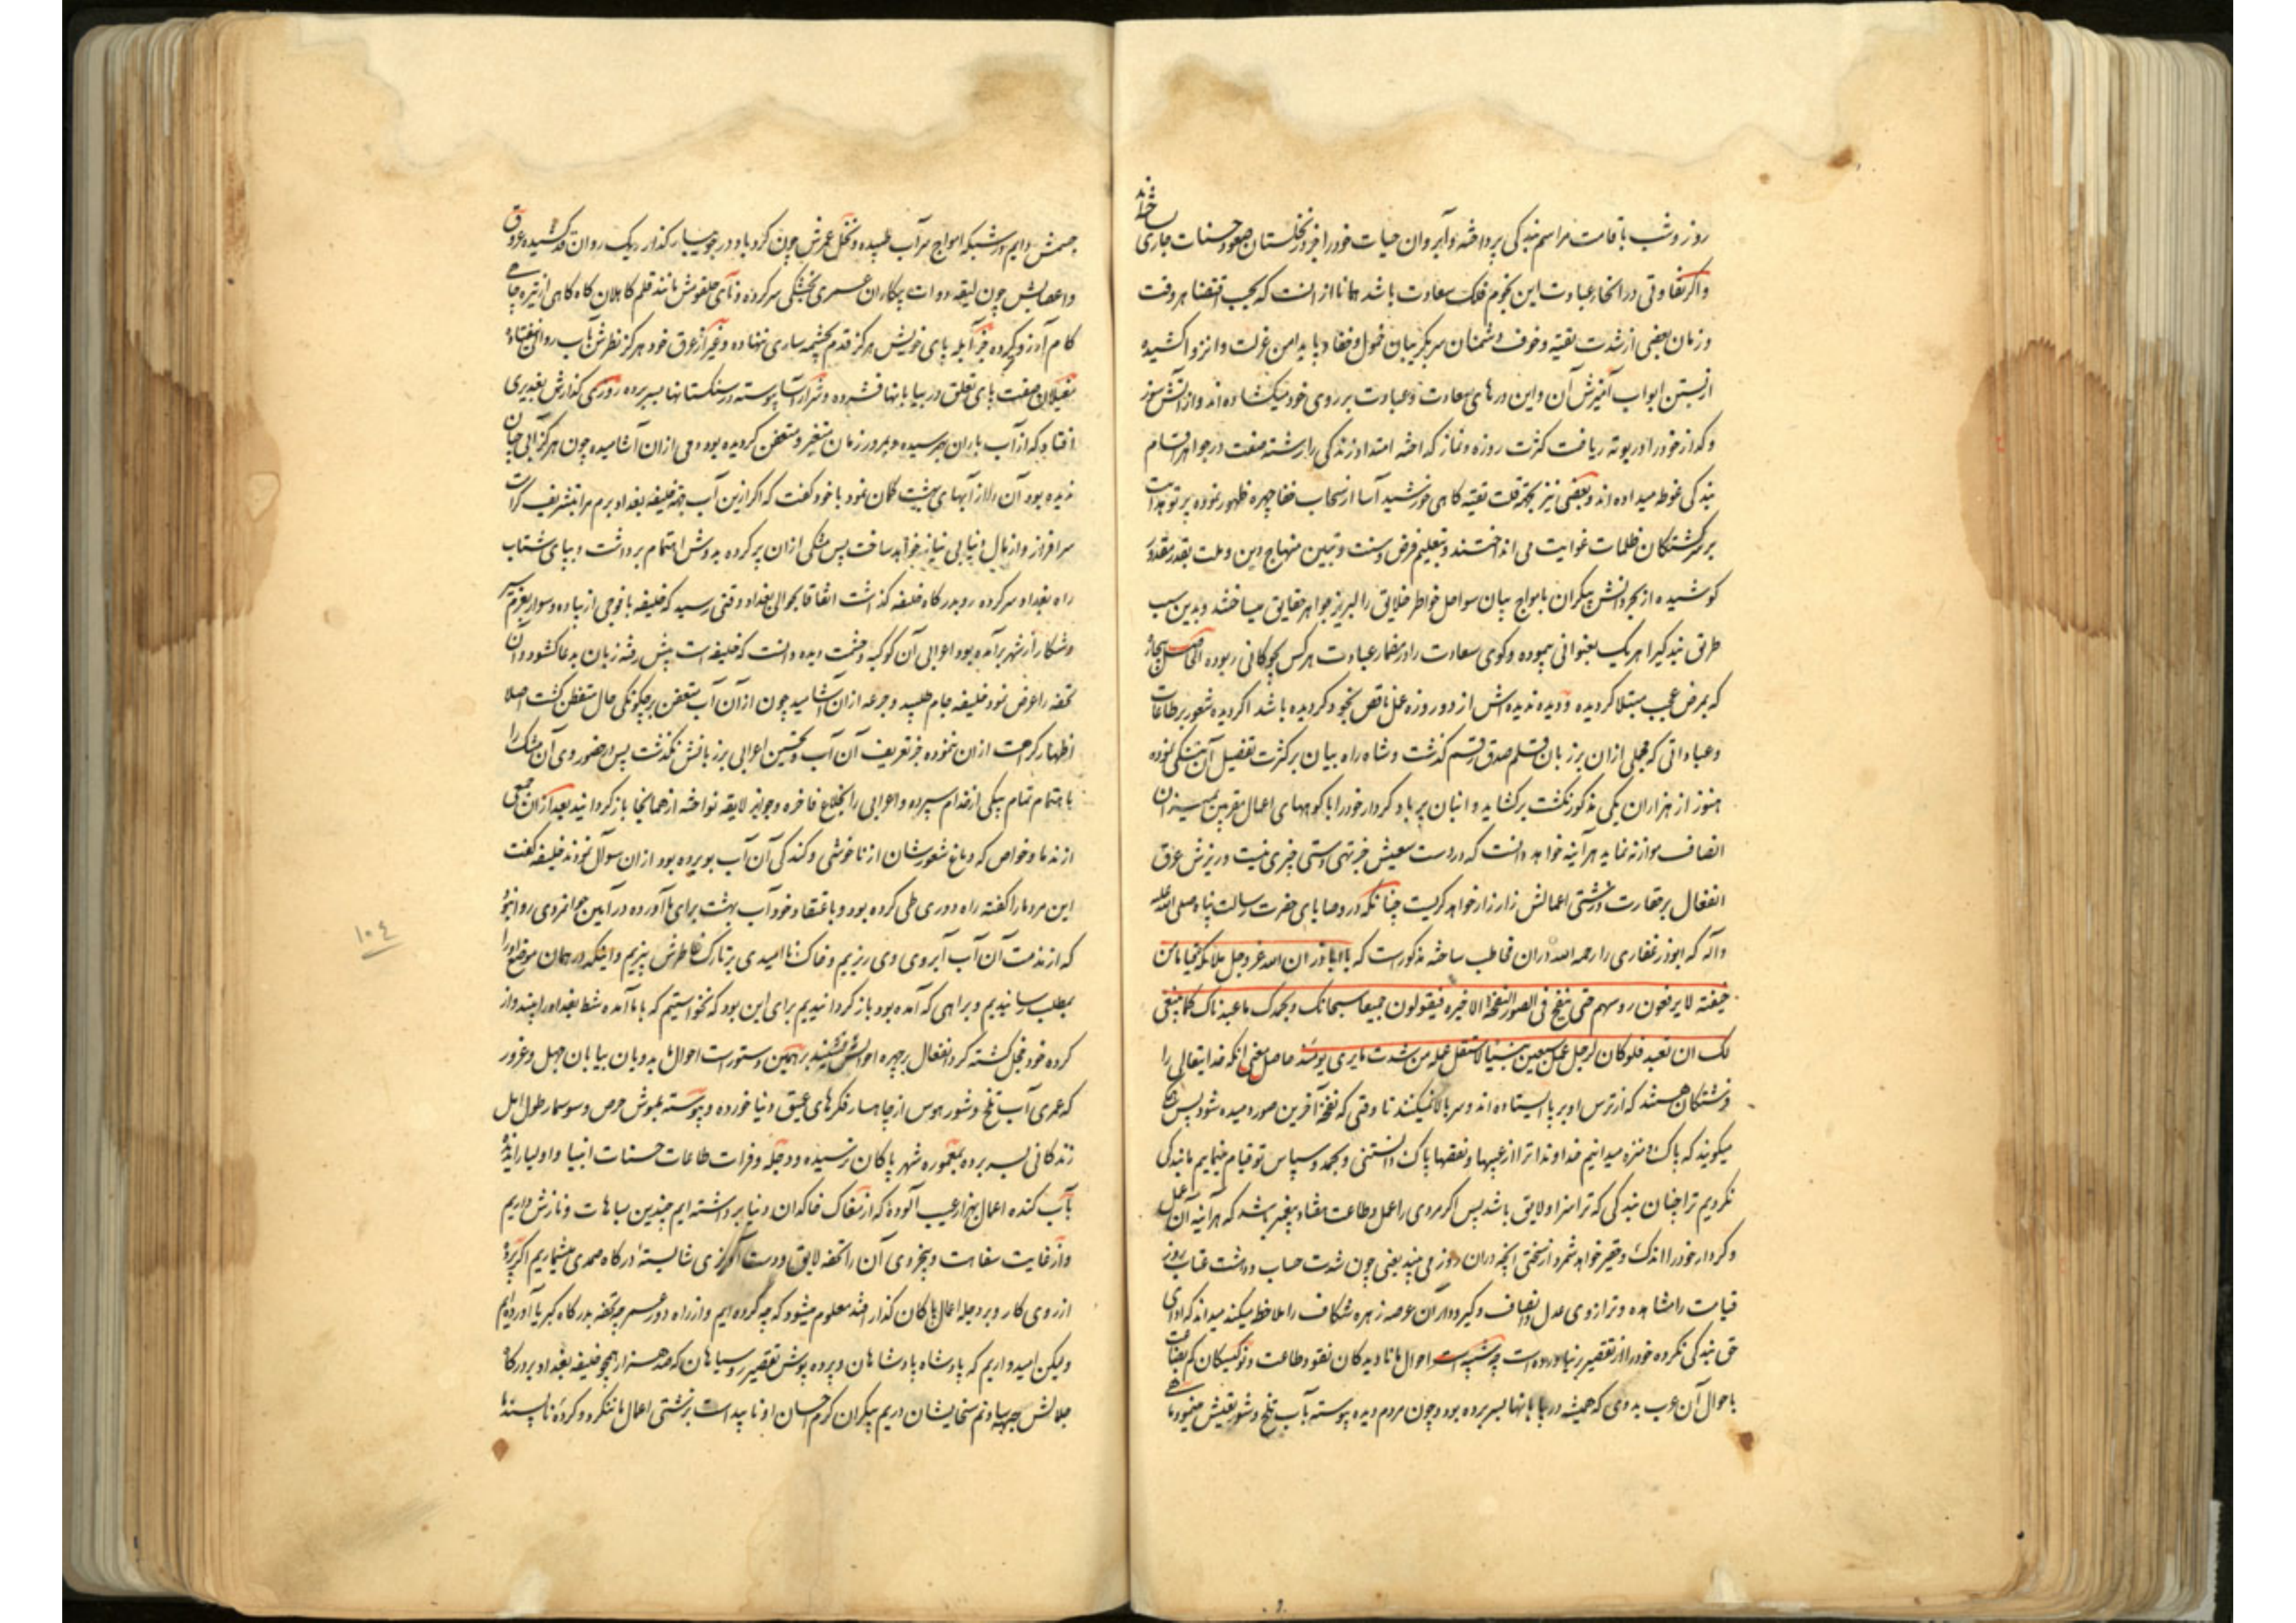 روز و شب باقامت مراسم بندگی پرداخته و آبروان حیات خود را خرد نخلستان صعود حسنات جاری ساخته‌اند
واکر تفاوتی در انحاء عبادت این نجوم فلک سعادت باشد همانا از انست که بحسب اقتضا هر وقت
و زمان بعضی از شدت تقیه و خوف دشمنان سر بکریبان خمول و خفا و پا بدامن عزلت و انزوا کشیده
از بستن ابواب آمیزش آن و این درهای سعادت و عبادت بر روی خود میکشاده‌اند و از آتش سوز
و کداز خود را در بوته ریاضت کثرت روزه و نماز کداخته امتداد زندکی را رشته صفت در جواهر اقسام
بندکی غوطه میداده‌اند و بعضی نیز بجهة قلت تقیه کاهی خورشید آسا از سحاب خفا چهره ظهور نموده پرتو هدایت
بر سرکشتکان ظلمات غوایت می انداختند و بتعلیم فرض و سنت و تبیین منهاج دین و ملت بقدر مقدور
کوشیده از بحر دانش بیکران بامواج بیان سواحل خواطر خلایق را لبریز جواهر حقایق میساختند و بدین سبب
طریق بندکی را هر یک بعنوانی پیموده و کوی سعادت را در مضمار عبادت هر کس بچوکانی ربوده الحاصل بیچاره
که بمرض عجب مبتلا کردیده و دیده ندیده‌اش از دو روزه عمل ناقص بخود کردیده باشد اکر دیده شعور بر طاعات
و عباداتی که مجملی از ان بر زبان قلم صدق رقم کذشت و شاه راه بیان بر کثرت تفصیل آن تنکی نموده
هنوز از هزاران یکی مذکور نکشت برکشاید و انبان پر باد کردار خود را با کوههای اعمال مقربین بمیزان
انصاف موازنه نماید هر آینه خواهد دانست که در دست سعیش جز تهی دستی چیزی نیست و ریزش عرق
انفعال بر حقارت و زشتی اعمالش زار زار خواهد کریست چنانکه در وصایای حضرت رسالت پناه صلی الله علیه
وآله که ابوذر غفاری را رحمه الله در ان مخاطب ساخته مذکور است که یا اباذر ان الله عز و جل ملائکة قیاما من
خیفته لا یرفعون روسهم حتی ینفخ فی الصور النفخة الاخیره فیقولون جمیعا سبحانک و بحمدک ما عبدناک کما ینبغی
لک ان تعبد فلو کان لرجل عمل سبعین نبیا لاستقل عمله من شدت ما یری یومئذ حاصل معنی انکه خدایتعالی را
فرشتکان هستند که از ترس او بر پا ایستاده‌اند و سر بالا نمیکنند تا وقتی که نفخه آخرین صور دمیده شود پس همکی
میکویند که پاک و منزه میدانیم خداوندا ترا از عیبها و نقصها پاک دانستنی و بحمد و سپاس تو قیام مینماییم ما بندکی
نکردیم ترا چنان بندکی که ترا سزا و لایق باشد پس اکر مردی را عمل و طاعت هفتاد پیغمبر باشد که هر آینه آن عمل
و کردار خود را اندک و حقیر خواهد شمرد از سختی انچه در ان روز می بیند یعنی چون شدت حساب و دهشت عتاب روز
قیامت را مشاهده و ترازوی عدل و انصاف و کیرودار آن عرصه زهره شکاف را ملاحظه میکند میداند که ادای
حق بندکی نکرده خود را از تقصیر بر نیاورده است چه شبیه است احوال ما نادیدکان نقود طاعت و نوکیسکان کم بضاعت
باحوال آن عرب بدوی که همیشه در بیابانها بسر برده بود و چون مردم دیده پیوسته بآب تلخ و شور تعیش مینمود ماهی
جسمش دایم در شبکه امواج سرآب طپیده و نخل عمرش چون کردباد در جویبار کذار ریک روان قد کشیده عروق
و اعصابش چون لیقه دوات بیکاران عمری بخشکی سر کرده و نای حلقومش مانند قلم کاهلان کاه کاهی از تیره چاهی
کام آرزو تر کرده جز آبله پای خویش هرکز قدم بچشمه ساری ننهاده و غیر از عرق خود هرکز نظرش بآب روان نیفتاده
مغیلان صفت پای تعلق در بیابانها فشرده و شرار آسا پیوسته در سنکستانها بسر برده روزی کذارش بغدیری
افتاد که از آب باران بهم رسیده و بمرور زمان متغیر و متعفن کردیده بود دمی از ان آشامیده چون هرکز آبی چنان
ندیده بود آن را از آبهای بهشت کمان نمود با خود کفت که اکر ازین آب بجهة خلیفه بغداد برم مرا بتشریف کرامت
سرافراز و از مال دنیا بی نیاز خواهد ساخت پس مشکی از ان پر کرده بدوش اهتمام برداشت و بپای شتاب
راه بغداد سر کرده رو بدرکاه خلیفه کذاشت اتفاقا بحوالی بغداد وقتی رسید که خلیفه با فوجی از پیاده و سوار بعزم سیر
و شکار از شهر برآمده بود اعرابی آن کوکبه و حشمت دیده دانست که خلیفه است پیش رفته زبان بدعا کشود و آن
تحفه را عرض نمود خلیفه جام طلبید و جرعه از ان آشامید چون از آن آب متعفن بر چکونکی حال متفطن کشت اصلا
اظهار کراهت از ان ننموده جز تعریف آن آب و تحسین اعرابی بر زبانش نکذشت پس در حضور وی آن مشک را
باهتمام تمام بیکی از خدام سپرده و اعرابی را بخلاع فاخره و جوایز لایقه نواخته از همانجا باز کردانید بعد از ان جمعی
از ندما و خواص که دماغ شعورشان از ناخوشی و کندکی آن آب بو برده بود از ان سوآل نمودند خلیفه کفت
این مرد ما را کفته راه دوری طی کرده بود و باعتقاد خود آب بهشت برای ما آورده در آیین جوانمردی روا نبود
که از مذمت آن آب آبروی وی ریزیم و خاک ناامیدی بر تارک خاطرش بیزیم و اینکه در همان موضع او را
بمطلب رسانیدیم و براهی که آمده بود باز کردانیدیم برای این بود که نخواستیم که با ما آمده شط بغداد را بیند و از
کرده خود خجل کشته کرد انفعال بر چهره احوالش نشیند بر همین دستور است احوال ما بدویان بیابان جهل و غرور
که عمری آب تلخ و شور هوس از چاهسار فکرهای عمیق دنیا خورده و پیوسته بموش حرص و سوسمار طول امل
زندکانی بسر برده بمعموره شهر پاکان نرسیده و دجله و فرات طاعات حسنات انبیا و اولیا را ندیده
بآب کنده اعمال بهزار عیب آلوده که از مغاک خاکدان دنیا برداشته ایم چندین مباهات و نازش داریم
و از غایت سفاهت و بیخردی آن را تحفه لایق و دست آویزی شایسته درکاه صمدی میشماریم اکر پرده
از روی کار و بر دجله اعمال پاکان کذار افتد معلوم میشود که چه کرده ایم و از راه دور عمر چه تحفه بدرکاه کبریا آورده ایم
ولیکن امیدواریم که پادشاه پادشاهان و پرده پوش تقصیر روسیاهان که صد هزار همچو خلیفه بغداد بر درکاه
جلالش جبهه سا و نم سخایشان در یم بیکران کرم احسان او ناپیداست بزشتی اعمال ما ننکرد و کرده ناپسند ما
١٠٤